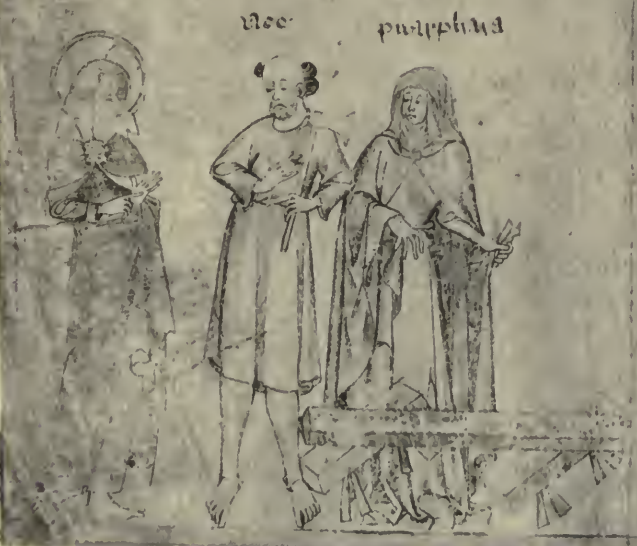 noe puarphara